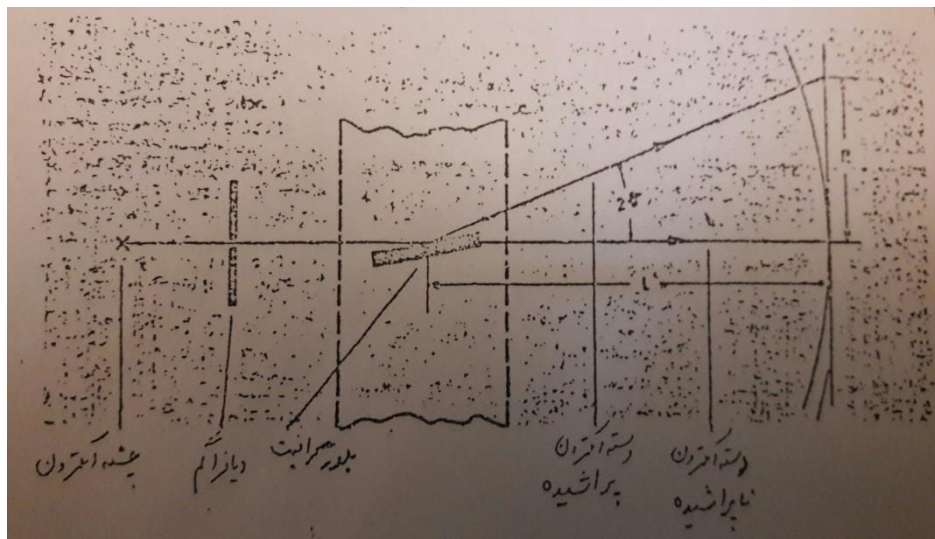 2θ
L
R
چشمه الکترون
دیافراگم
بلور گرافیت
دسته الکترون
پراشیده
دسته الکترون
ناپراشیده